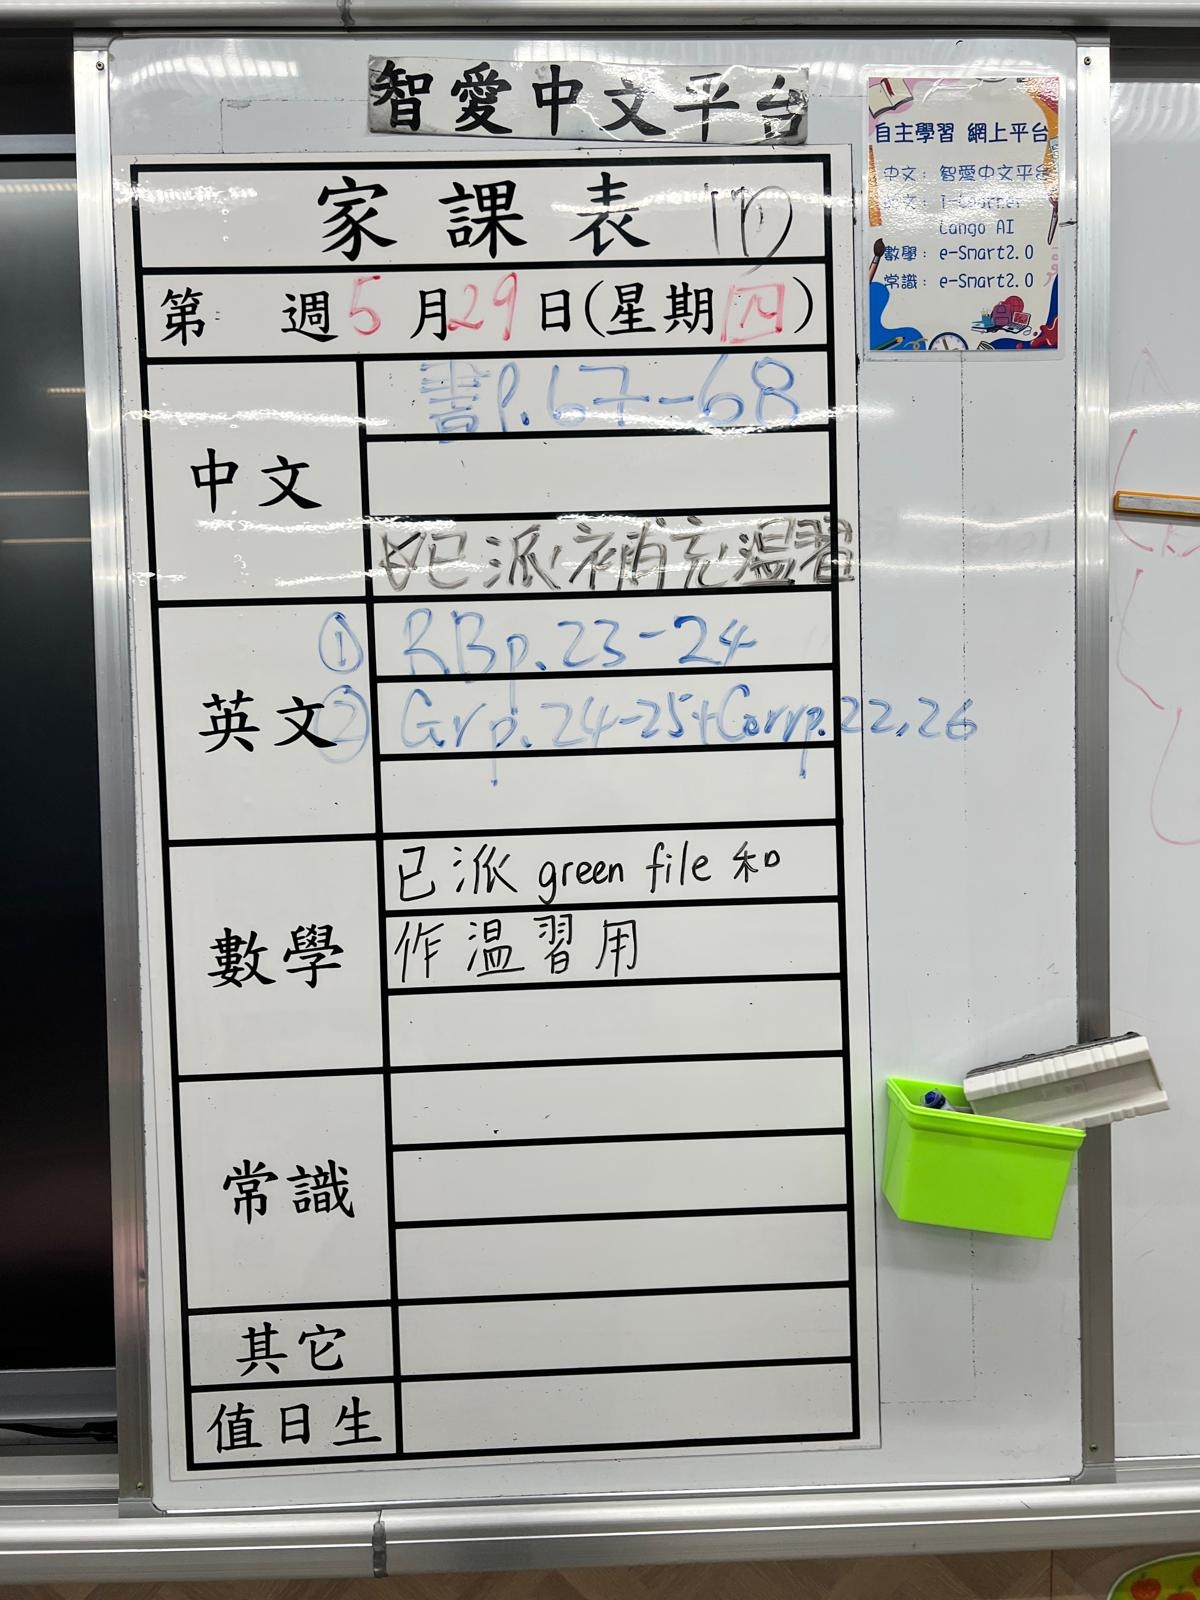 智愛中文平台
家課表 1D
第 週 5月29日(星期四)
中文
書P.67-68
已派補充溫習
英文
① RBp.23-24
② Grp.24-25+Corrp.22,26
數學
已派 green file 和
作溫習用
常識
其它
值日生
自主學習 網上平台
中文: 智愛中文平台
文: i-Learner
Lango AI
數學: e-Smart2.0
常識: e-Smart2.0